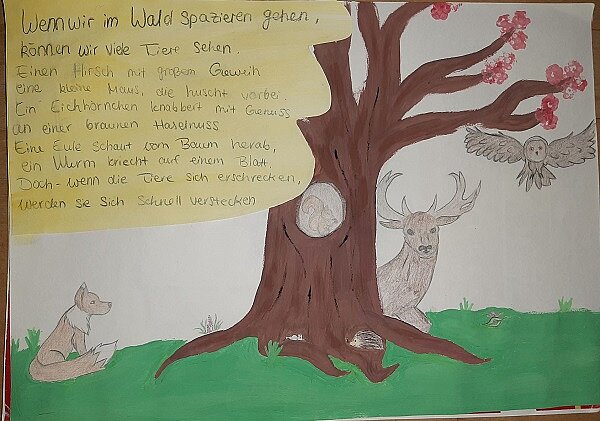 Wenn wir im Wald spazieren gehen,
können wir viele Tiere sehen.
Einen Hirsch mit großem Geweih
eine kleine Maus, die huscht vorbei.
Ein Eichhörnchen knabbert mit Genuss
an einer braunen Haselnuss
Eine Eule schaut vom Baum herab,
ein Wurm kriecht auf einem Blatt.
Doch wenn die Tiere sich erschrecken,
werden sie sich schnell verstecken